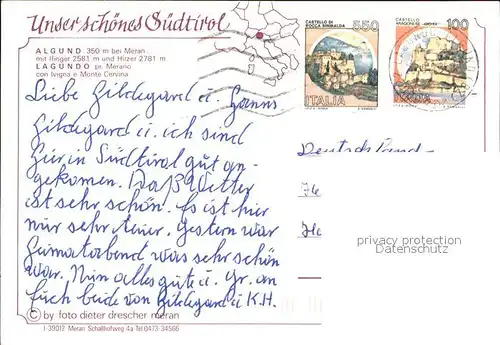 Unser schönes Südtirol
ALGUND 350 m bei Meran
mit Ifinger 2581 m und Hirzer 2781 m
LAGUNDO pr. Merano
con Ivigna e Monte Cervina
CASTELLO DI ROCCA SINIBALDA 550
ITALIA
CASTELLO ARAGONESE - ISCHIA 100
Liebe Hildegard u. Hanns
Hildegard u. ich sind
hier in Südtirol gut an-
gekomen. Daß Wetter
ist sehr schön. Es ist hier
nur sehr teuer. Gestern war
Heimatabend was sehr schön
war. Nun alles gute u. Gr. an
Euch beide von Hildegard u K.H.
Deutschland
privacy protection
Datenschutz
© by foto dieter drescher meran
I-39012 Meran Schallhofweg 4a Tel.0473-34566